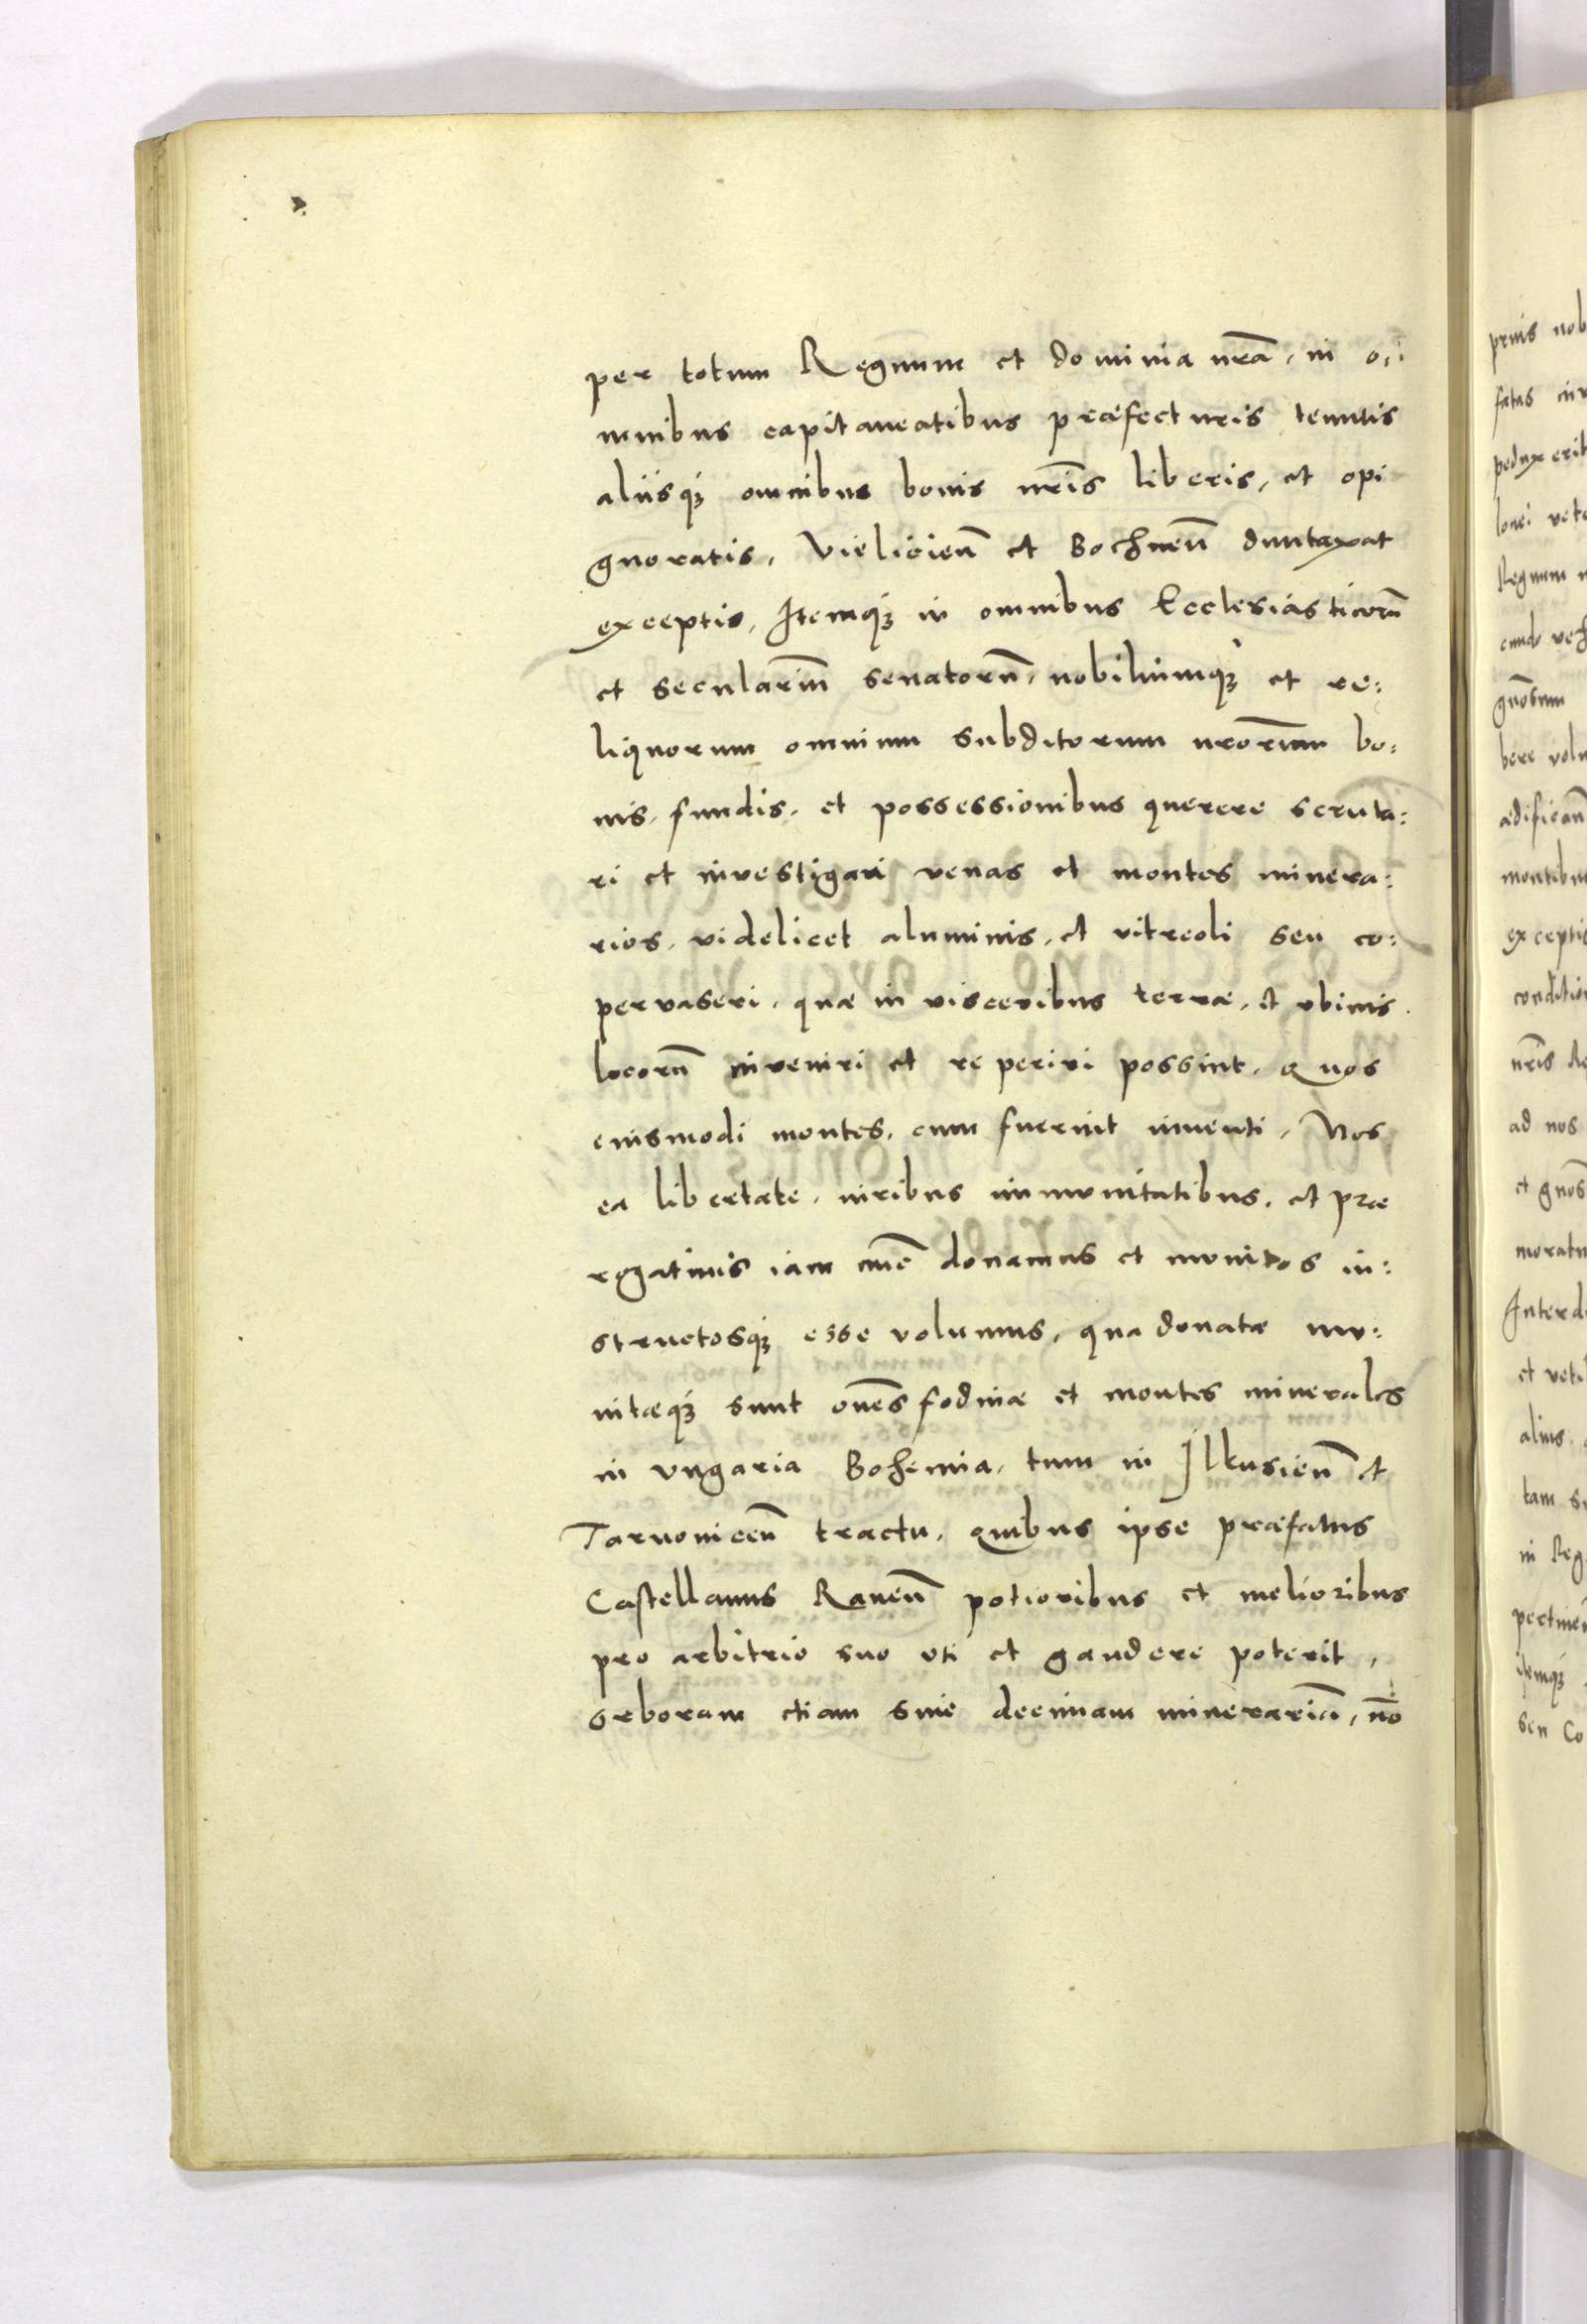 per totum Regnum et dominia nr̄a, in o:
mnibus capitaneatibus præfecturis tenutis
aliisq3 omnibus bonis nr̄is liberis, et opi
gnoratis, Vielicień et Bochneń duntaxat
exceptis, Itemq3 in omnibus Ecclesiasticorū
et seculariū senatorū, nobiliumq3 et re:
liquorum omnium subditorum nrōrum bo:
nis, fundis, et possessionibus querere scruta:
ri et investigari venas et montes minera:
rios, videlicet aluminis, et vitreoli seu co:
pervaseri, quæ in visceribus terræ, et vbivis
locorū inveniri et reperiri possint, Quos
eiusmodi montes, cum fuerint inventi, Nos
ea libertate, iuribus immunitatibus, et præ
rogatiuis iam nūc donamus et munitos in:
structosq3 esse volumus, qua donatæ mu:
nitæq3 sunt om̄es fodinæ et montes minerales
in Vngaria Bohemia, tum in Ilkusień et
Tarnoviceń tractu, Quibus ipse præfatus
Castellanus Raveń potioribus et melioribus
pro arbitrio suo vti et gaudere poterit,
orboram etiam sive decimam minerariā, nō
prius nob
fatas
lonei
Regnum
gnōrum
bere volu
ædificań
exceptis
nr̄is
ad nos
et
Interd
et
alius
tam
in Reg
itemq3
seu Co